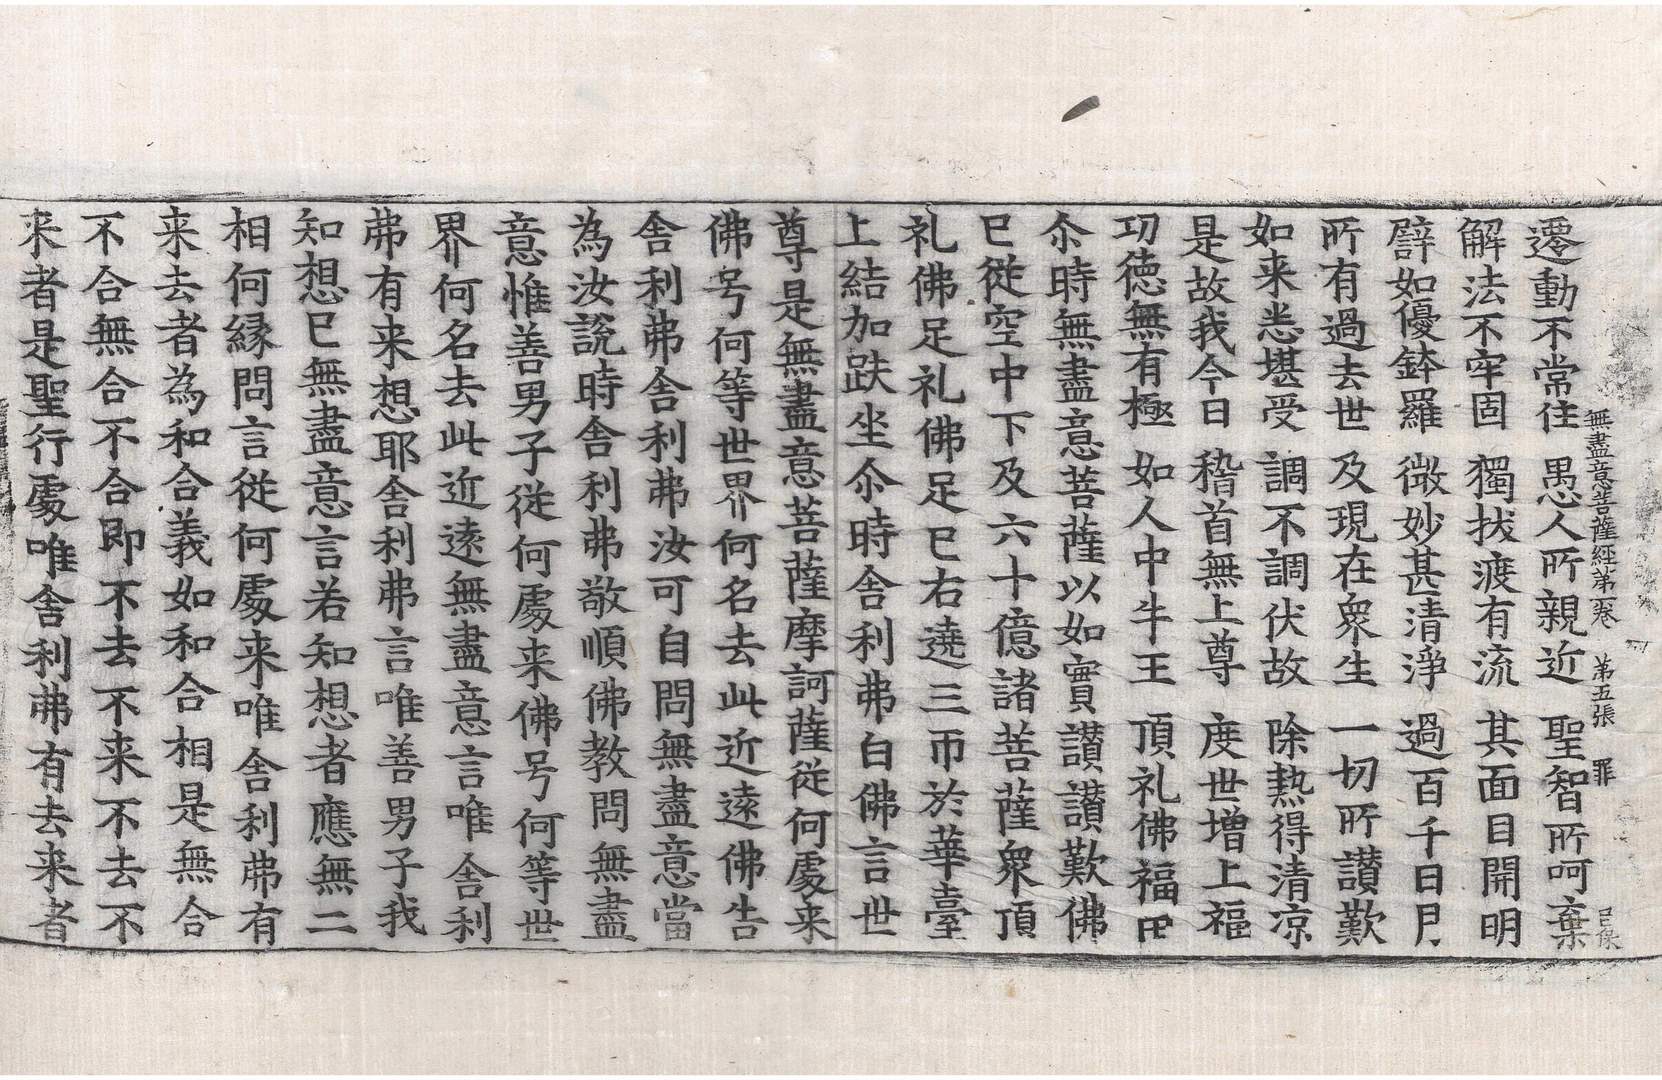 無盡意菩薩經第一卷 第五張 罪
遷動不常住 愚人所親近 聖智所呵棄
解法不牢固 獨拔渡有流 其面目開明
譬如優鉢羅 微妙甚清淨 過百千日月
所有過去世 及現在衆生 一切所讃歎
如来悉堪受 調不調伏故 除熱得清凉
是故我今日 稽首無上尊 度世增上福
功徳無有極 如人中牛王 頂礼佛福田
尒時無盡意菩薩以如實讃讃歎佛
已從空中下及六十億諸菩薩衆頂
礼佛足礼佛足已右遶三帀於華臺
上結加趺坐尒時舍利弗白佛言世
尊是無盡意菩薩摩訶薩從何處来
佛号何等世界何名去此近遠佛告
舍利弗舍利弗汝可自問無盡意當
為汝說時舍利弗敬順佛教問無盡
意惟善男子從何處来佛号何等世
界何名去此近遠無盡意言唯舍利
弗有来想耶舍利弗言唯善男子我
知想已無盡意言若知想者應無二
相何縁問言從何處来唯舍利弗有
来去者為和合義如和合相是無合
不合無合不合即不去不来不去不
来者是聖行處唯舍利弗有去来者